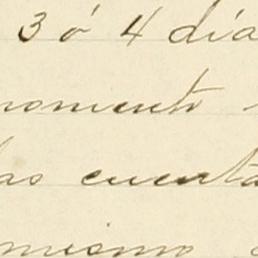 3 ó 4 día
momento
las cuenta
mismo